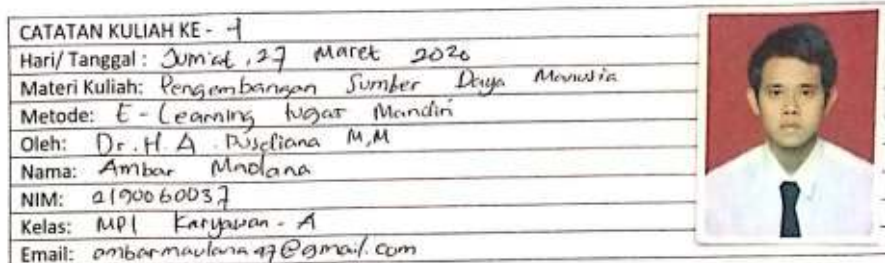 CATATAN KULIAH KE - 1
Hari/ Tanggal : Jum'at, 27 Maret 2020
Materi Kuliah: Pengembangan Sumber Daya Manusia
Metode: E - Learning tugas Mandiri
Oleh: Dr. H. A. M,M
Nama: Ambar
NIM: 2190060037
Kelas: MPI Karyawan - A
Email: ambarmaulana47@gmail.com